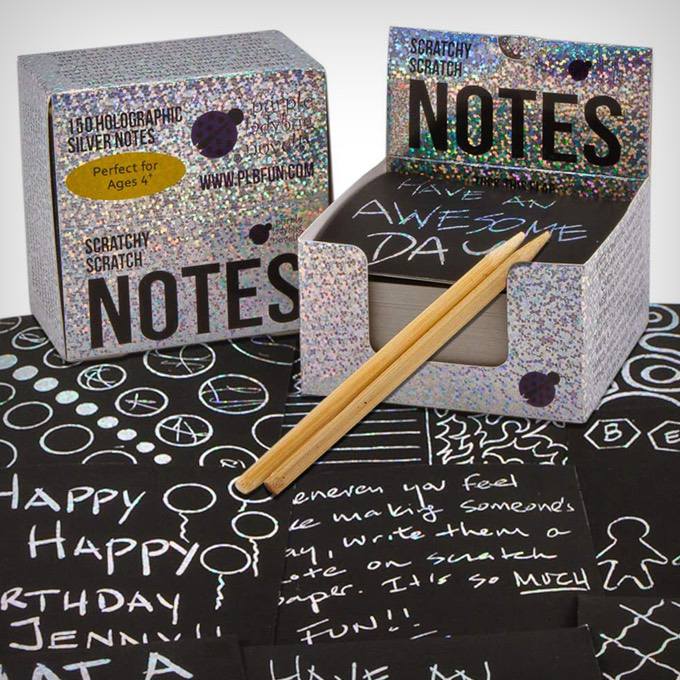 150 HOLOGRAPHIC
SILVER NOTES
Perfect for
Ages 4+
purple
ladybug
novelty
WWW.PLBFUN.COM
SCRATCHY
SCRATCH
NOTES
SCRATCHY
SCRATCH
NOTES
HAVE AN
AWESOME
DAY
HAPPY
HAPPY
BIRTHDAY
JENNY!!
enever you feel
ke making someone's
ay, write them a
ote on scratch
paper. It's so MUCH
FUN!!
B E
AT A
HAVE AN